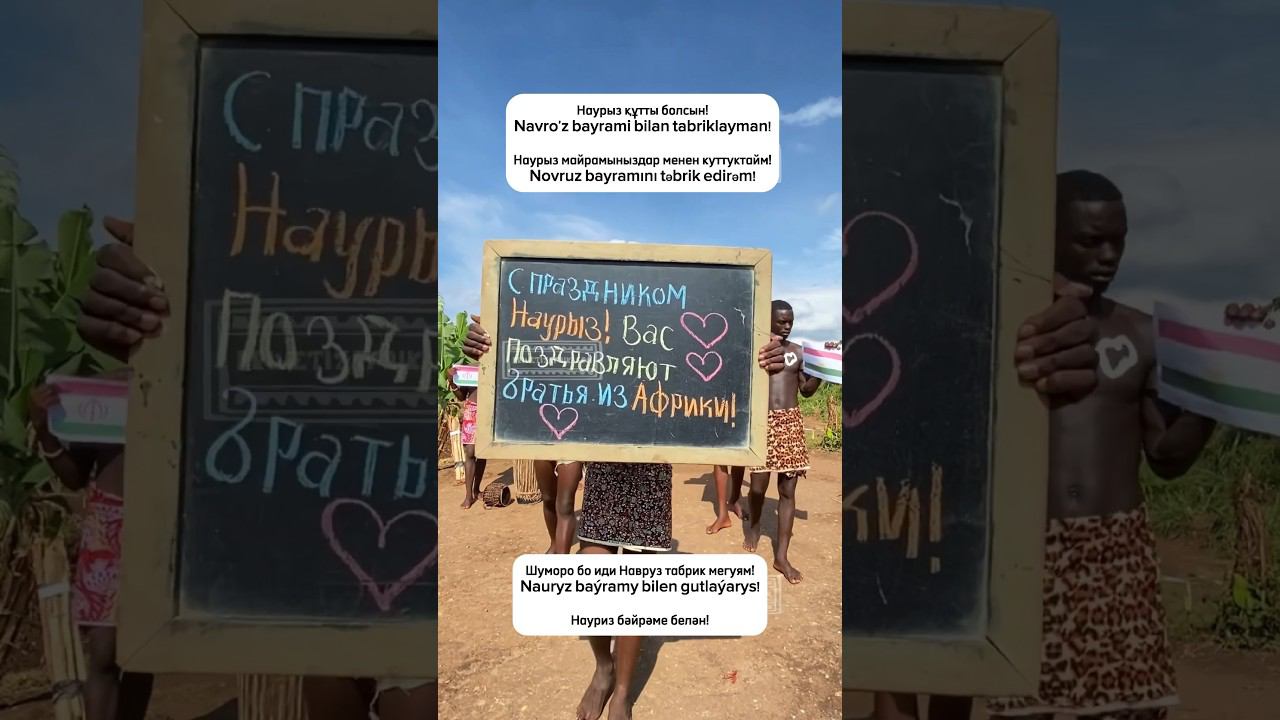 Наурыз құтты болсын!
Navro'z bayrami bilan tabriklayman!
Наурыз майрамыныздар менен куттуктайм!
Novruz bayramını təbrik edirəm!
С ПРАЗДНИКОМ
Наурыз! Вас
Поздравляют
братья из Африки!
Шуморо бо иди Навруз табрик мегуям!
Nauryz baýramy bilen gutlaýarys!
Науриз бәйрәме белән!